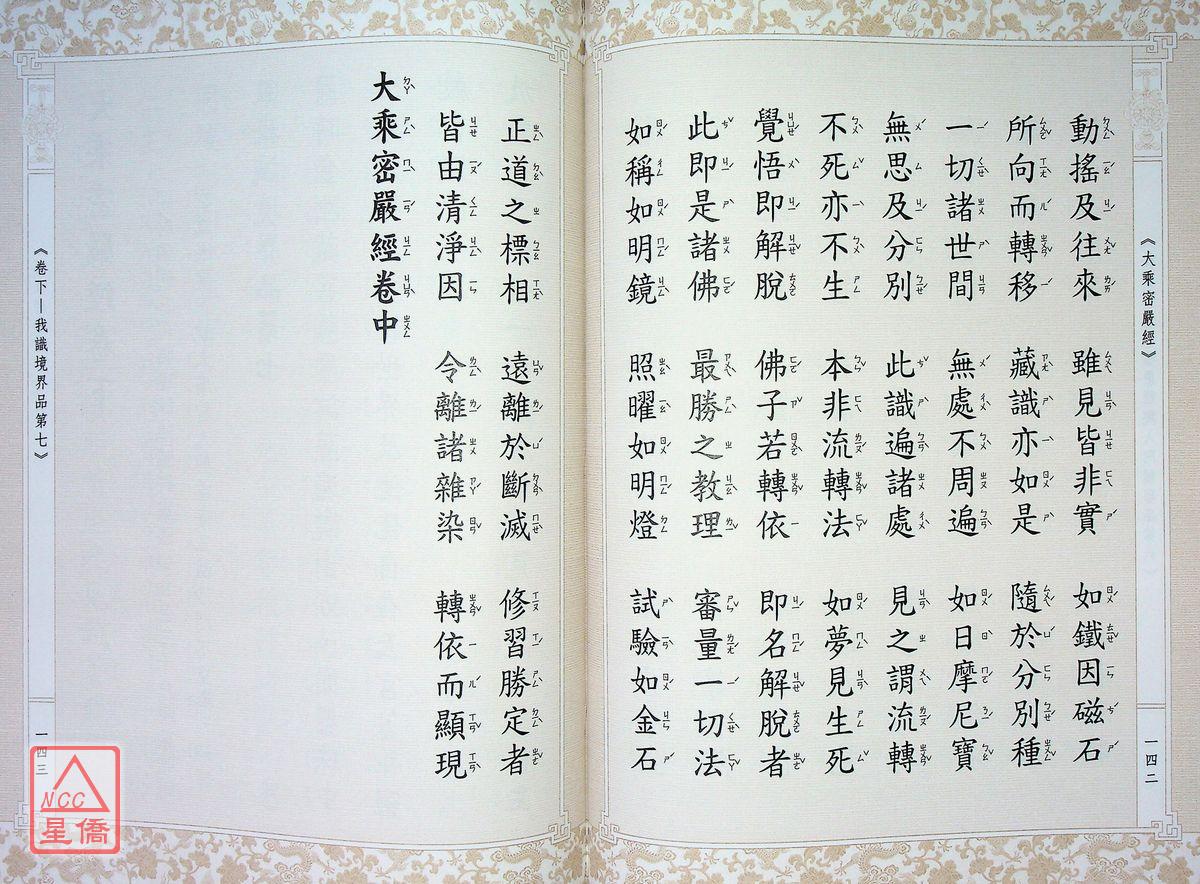 《大乘密嚴經》
動搖及往來　雖見皆非實　如鐵因磁石
所向而轉移　藏識亦如是　隨於分別種
一切諸世間　無處不周遍　如日摩尼寶
無思及分別　此識遍諸處　見之謂流轉
不死亦不生　本非流轉法　如夢見生死
覺悟即解脫　佛子若轉依　即名解脫者
此即是諸佛　最勝之教理　審量一切法
如稱如明鏡　照曜如明燈　試驗如金石
一四二
正道之標相　遠離於斷滅　修習勝定者
皆由清淨因　令離諸雜染　轉依而顯現
大乘密嚴經卷中
《卷下—我識境界品第七》
一四三
NCC
星僑